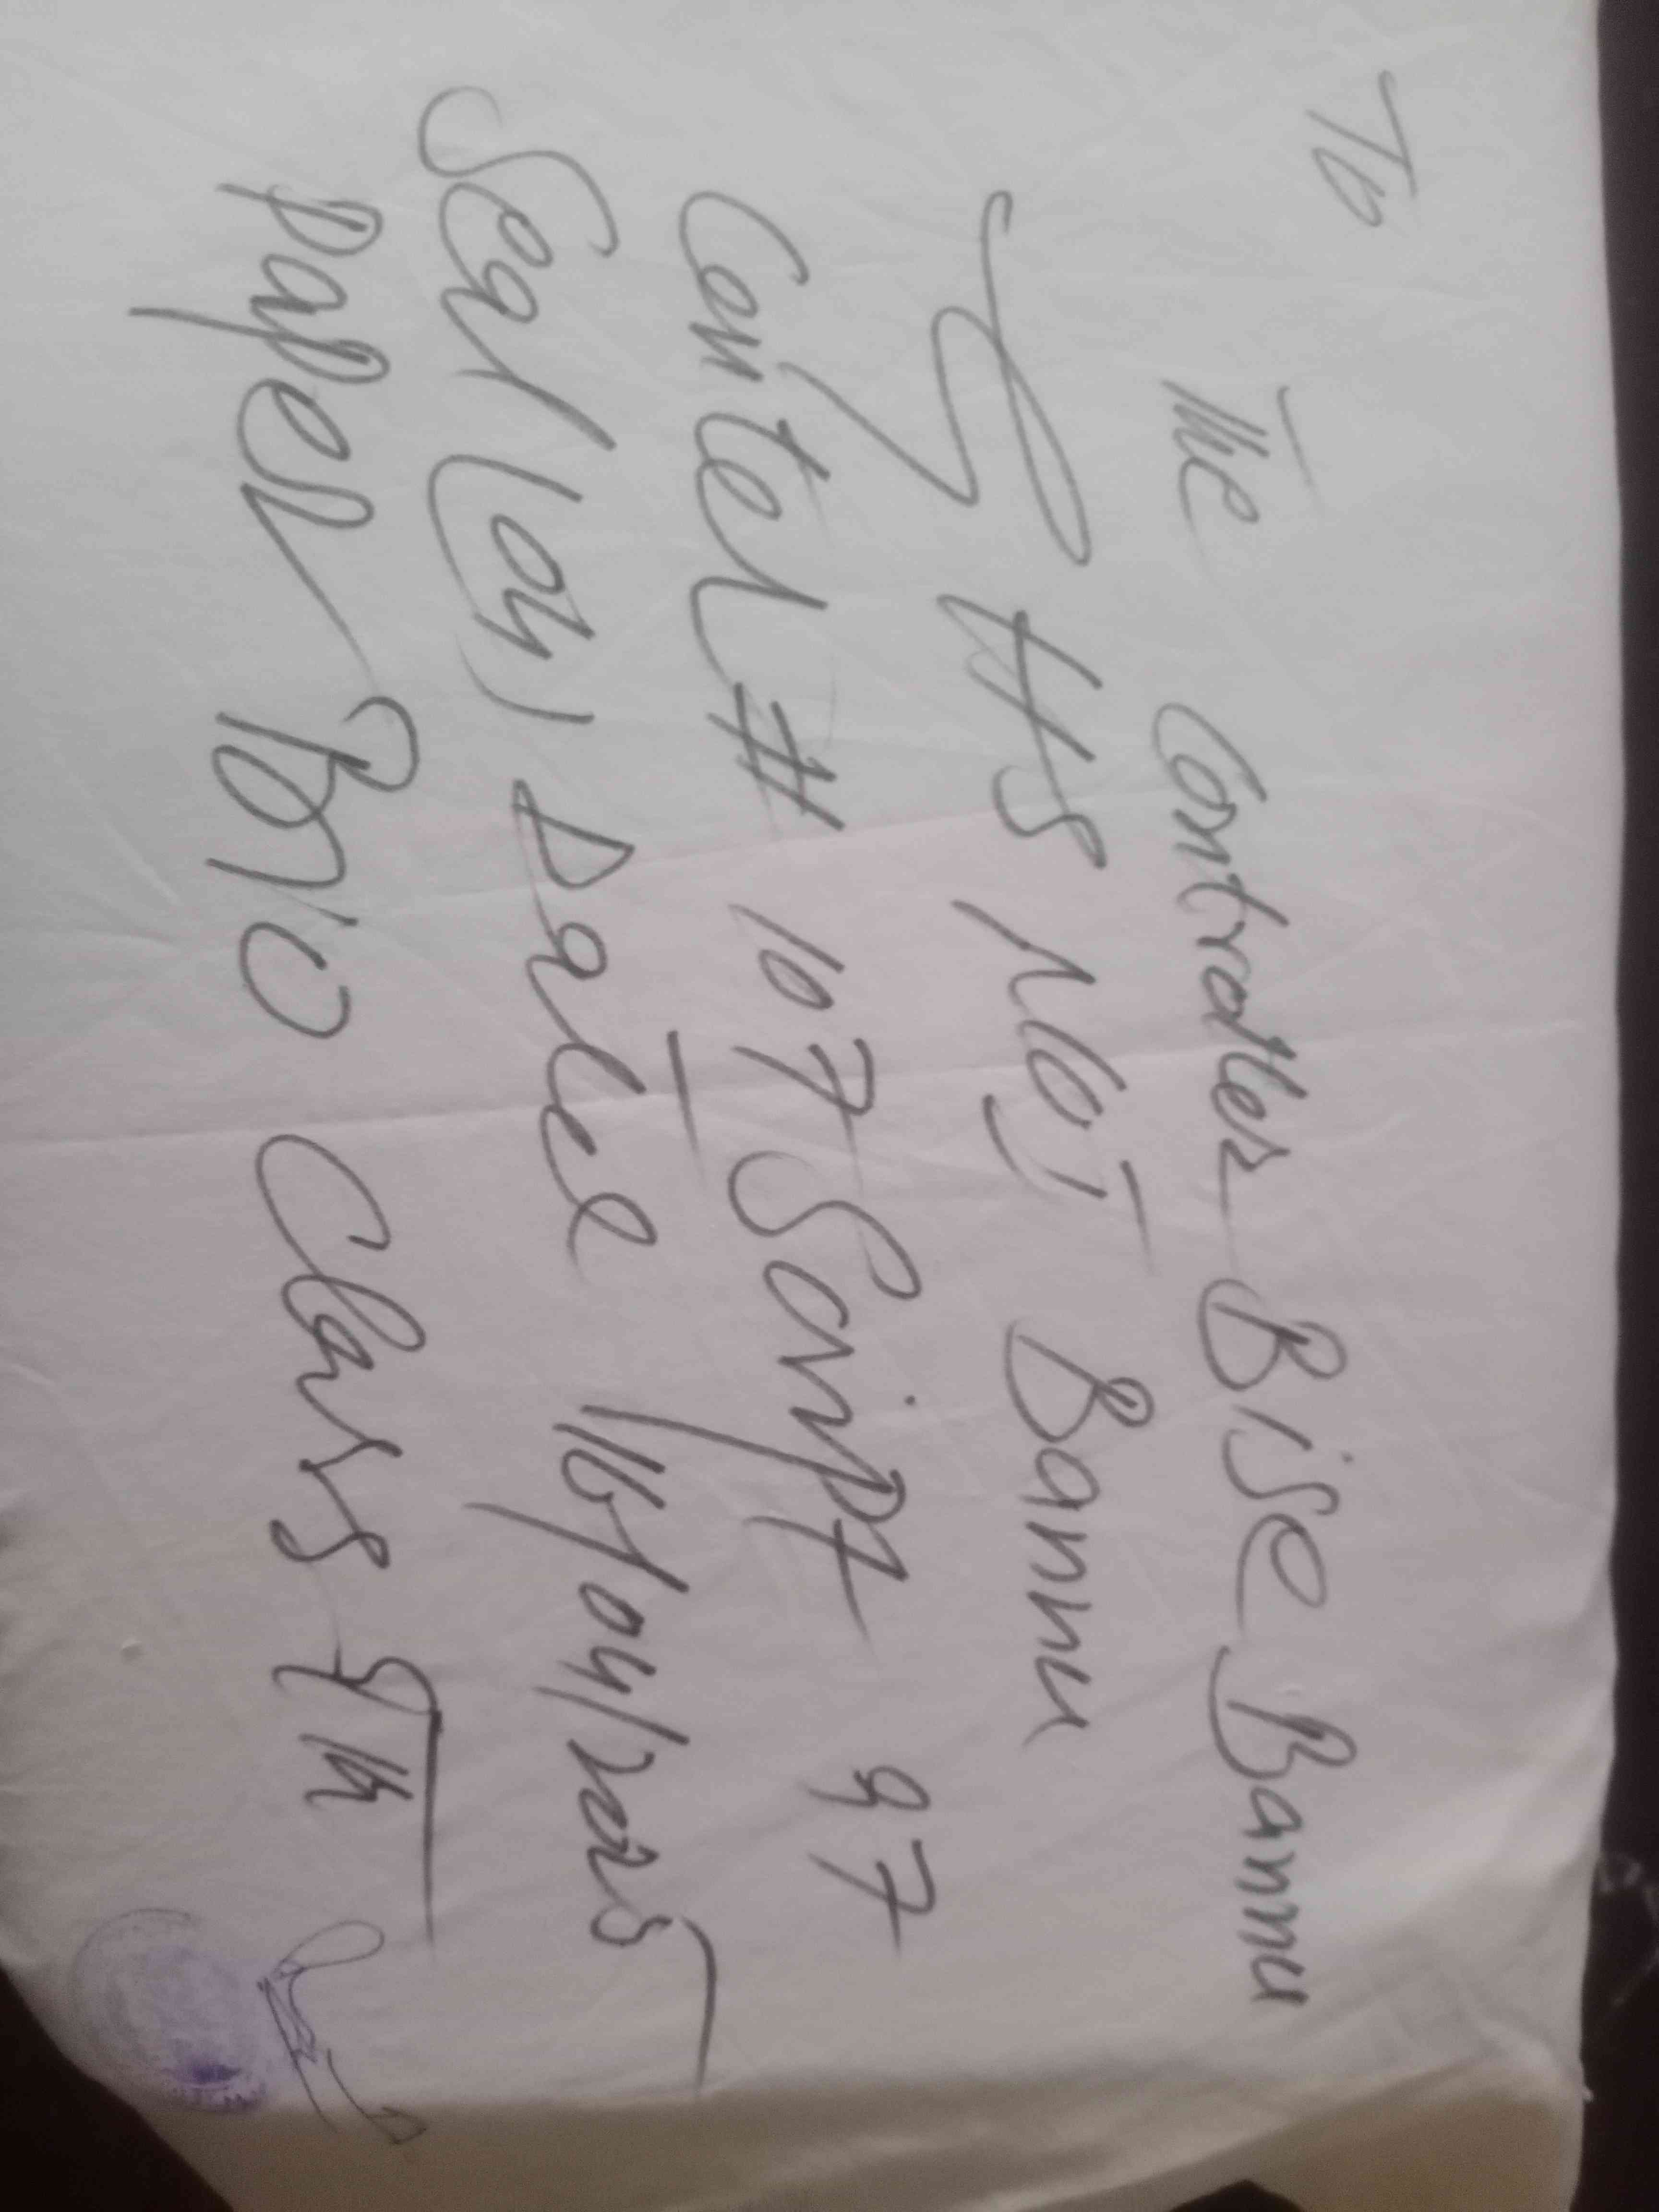 To
The Controller Bise Bannu
HS No1 Bannu
Center # 107 Script 97
Seal (04) Date 16/04/2025
Paper Bio Class 9th